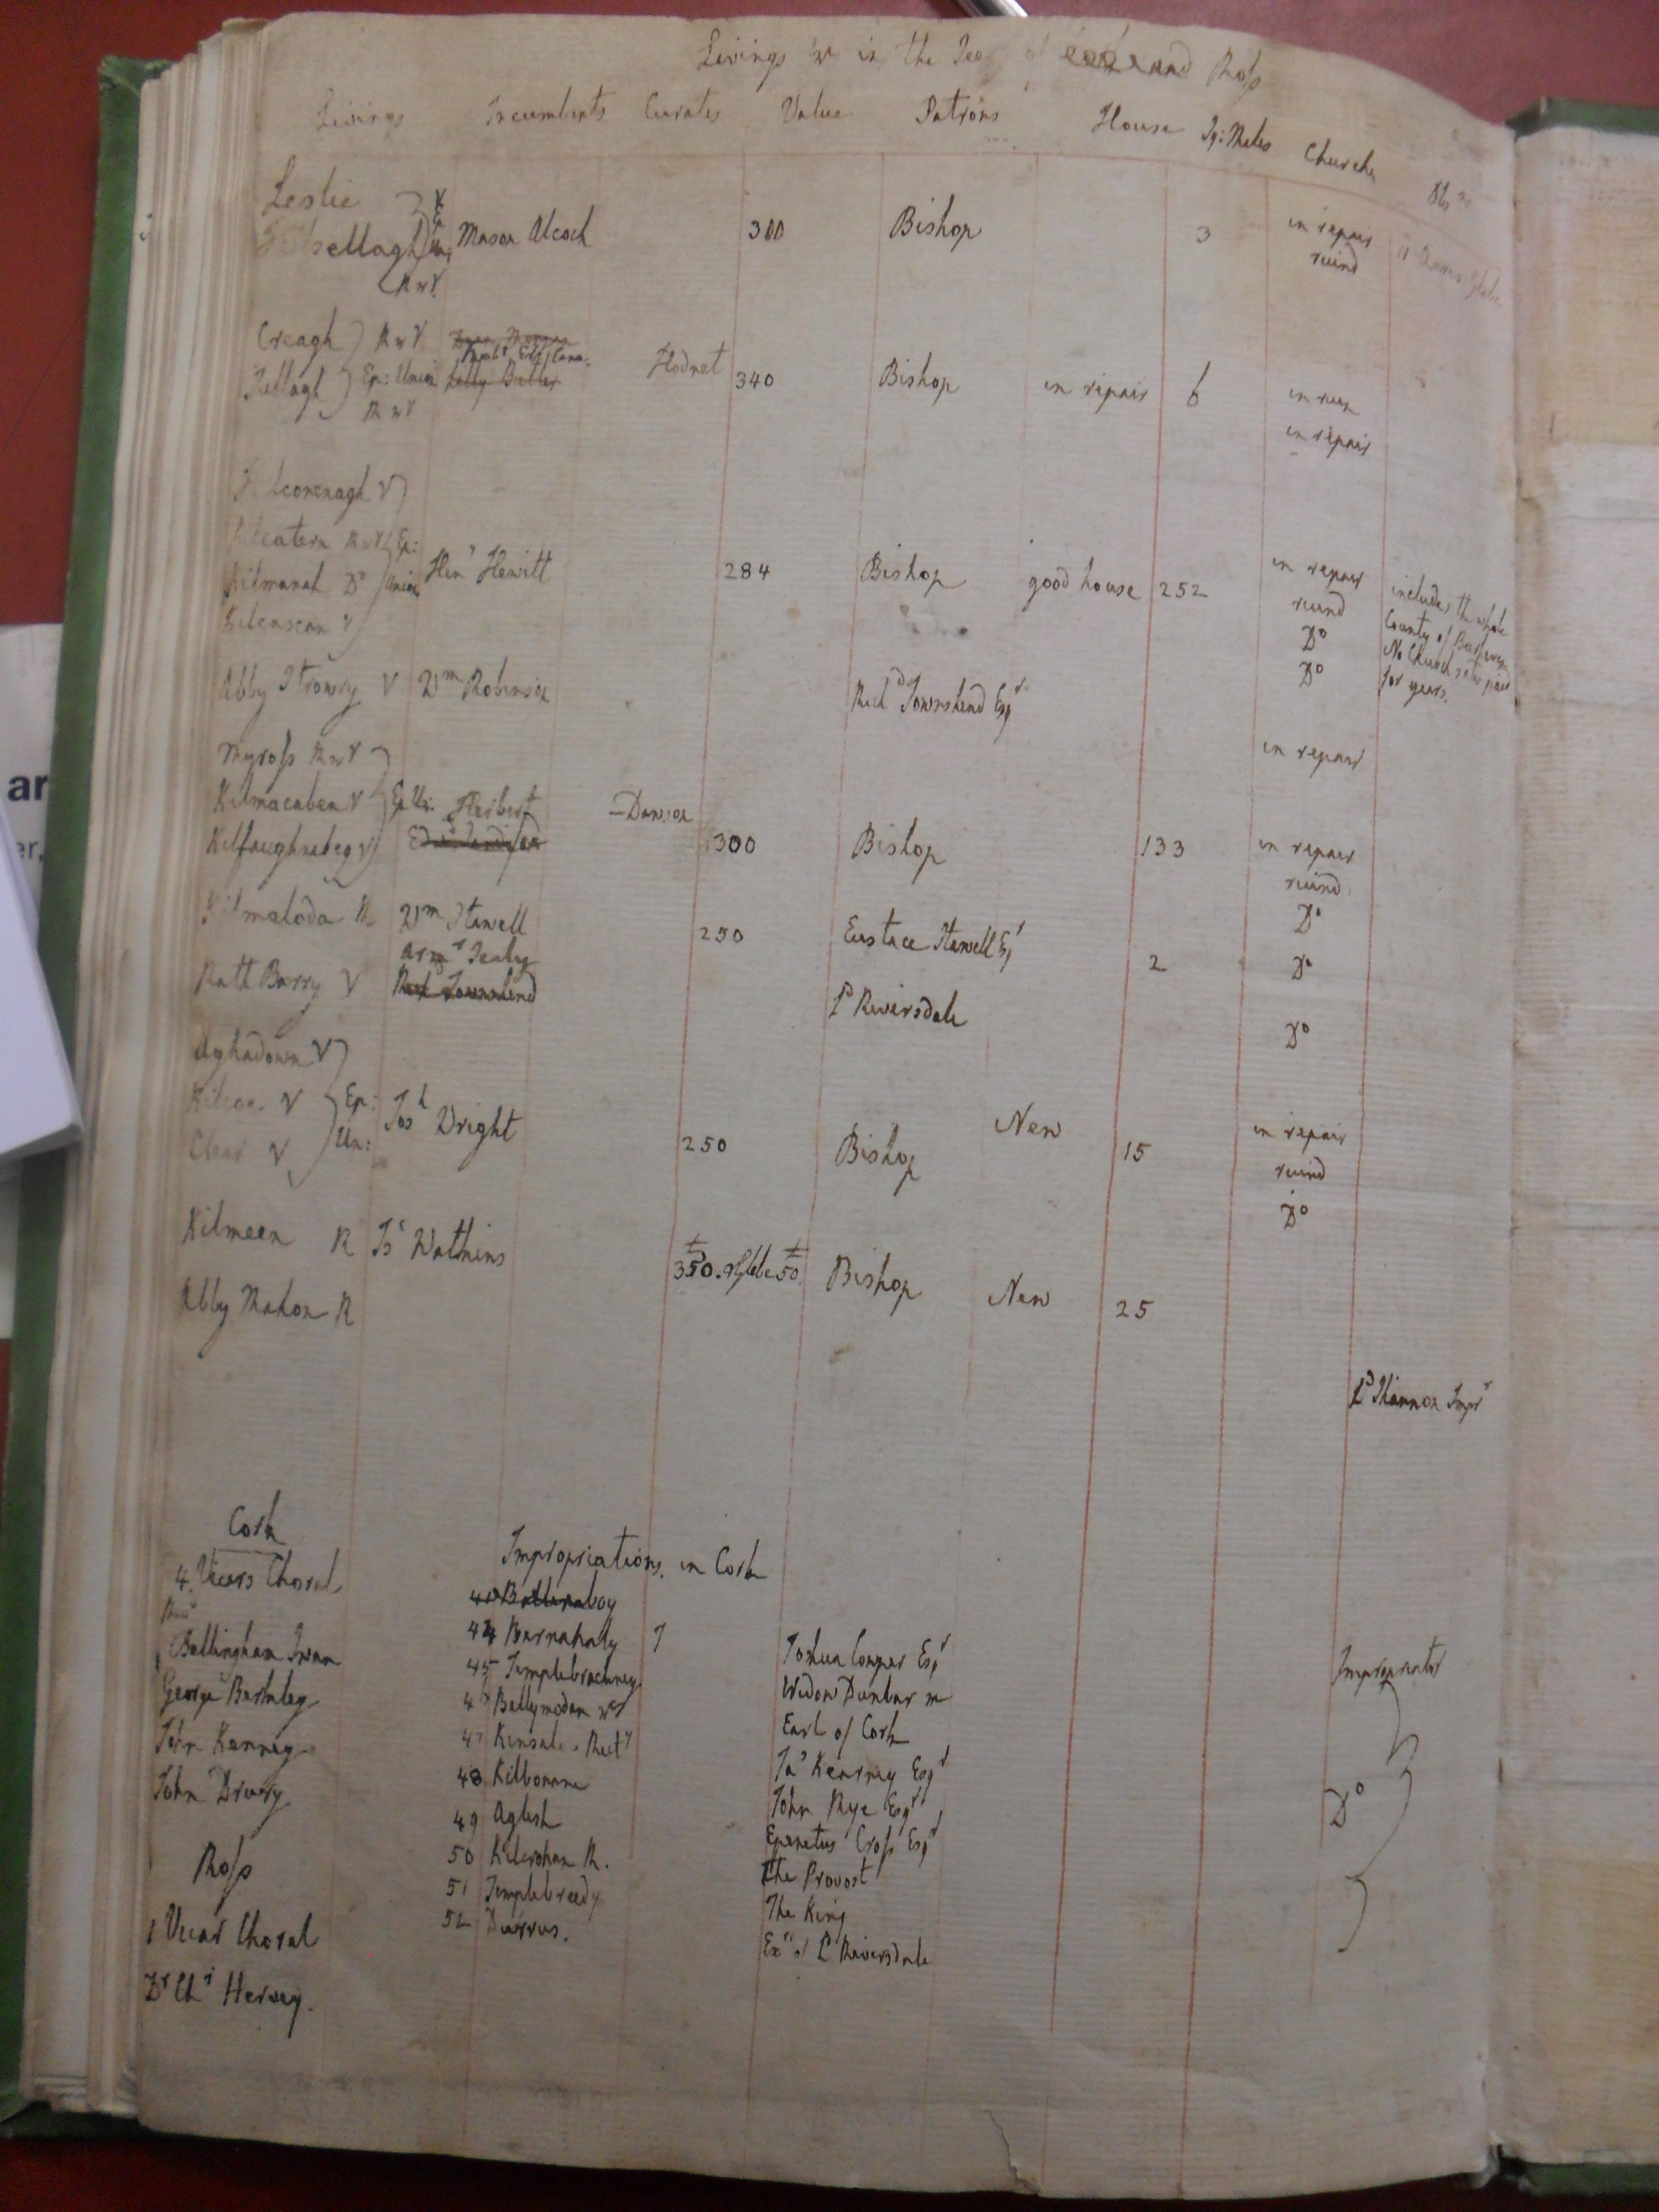 Livings &c in the See of Cork and Ross
Livings Incumbents Curates Value Patrons House Sq: Miles Churches Obs
Leslie V
Ep
sellagh Un: Mason Alcock 300 Bishop 3 in repair
ruind
R & V
Creagh R & V Dean Morgan
Tullagh Ep: Union Hodnet 340 Bishop in repair 6 in ruin
R & V
in repair
lcorenagh V
catern R & V Ep:
Kilmanah Do Union Heny Hewitt 284 Bishop good house 252 in repair
ruind
Do
Do
includes the whole
County of
No Church rates paid
for years.
Kilcascan V
Abby Strowry V Wm Robinson Richd Townshend Esqr in repair
Myross R & V
Kilmacabea V Ep Un: Herbert Dawson
Kilfaughnabeg V 300 Bishop 133 in repair
ruind
Do
Kilmaloda R Wm Stawell 250 Eustace Stawell Esqr 2 Do
Armr Sealy
Rath Barry V Rich Townshend Ld Riversdale Do
Aghadown V
Kilcoe V Ep: Josh Wright New
Clear V Un: 250 Bishop 15 in repair
ruind
Do
Kilmeen R Js Watkins £350. Glebe £50 Bishop New 25
Abby Mahon R
Ld Shannon Impr
Cork
4. Vicars Choral
Revd
Bellingham Swan
George
John Kenney
John Drury
Ross
1 Vicar Choral
Dr Chr Hervey.
Impropriations in Cork
Ballinaboy
44 Barnahaly 7 Joshua Cowper Esqr Impropriator
45 Templebrackney Widow Dunbar
46 Ballymodan Earl of Cork
47 Kinsale Recty Jas Kearney Esqr
48 Kilbonane John Rye Esqr Do
49 Aglish Epenetus Cross Esqr
50 Kilcrohan R. The Provost
51 Templebreedy The King
52 Durrus. Exrs of Ld Riversdale